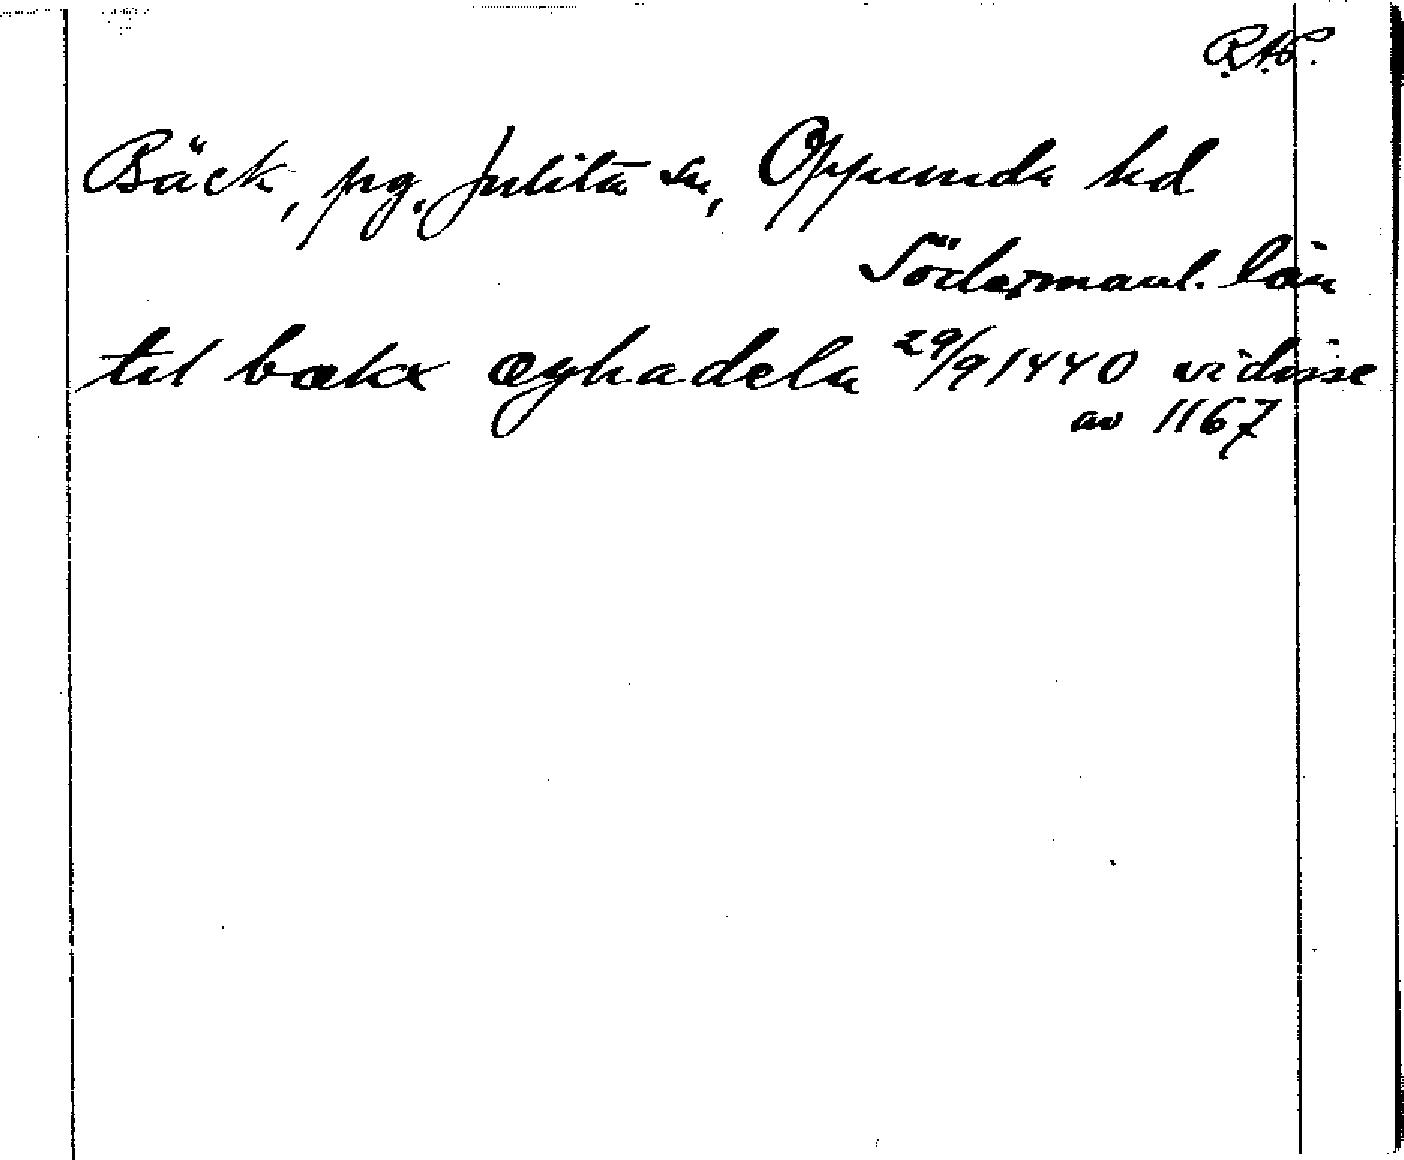 R.A.P.
Bäck, pg. Julita sn, Oppunda hd
Södermanl. län
til bækx æghadela 29/9 1440 vidisse
av 1167